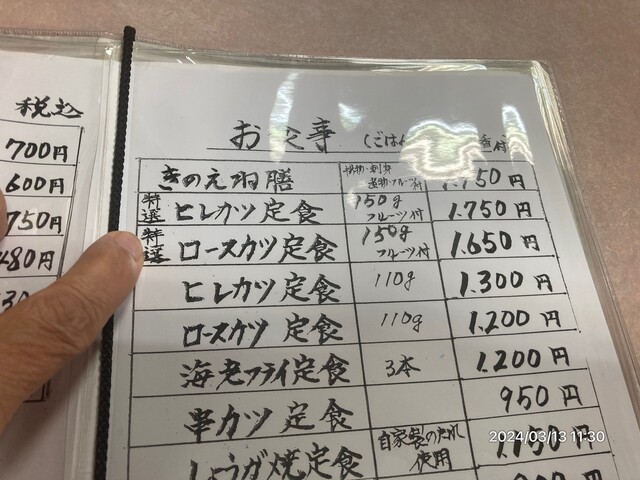 税込
700円
600円
750円
480円
お食事 (ごはん
きのえ羽膳 揚物・刺身 煮物・フルーツ付 1.750円
特選 ヒレカツ定食 150g フルーツ付 1.750円
特選 ロースカツ定食 150g フルーツ付 1.650円
ヒレカツ定食 110g 1.300円
ロースカツ定食 110g 1.200円
海老フライ定食 3本 1.200円
串カツ定食 950円
しょうが焼定食 自家製のたれ使用 1.150円
2024/03/13 11:30